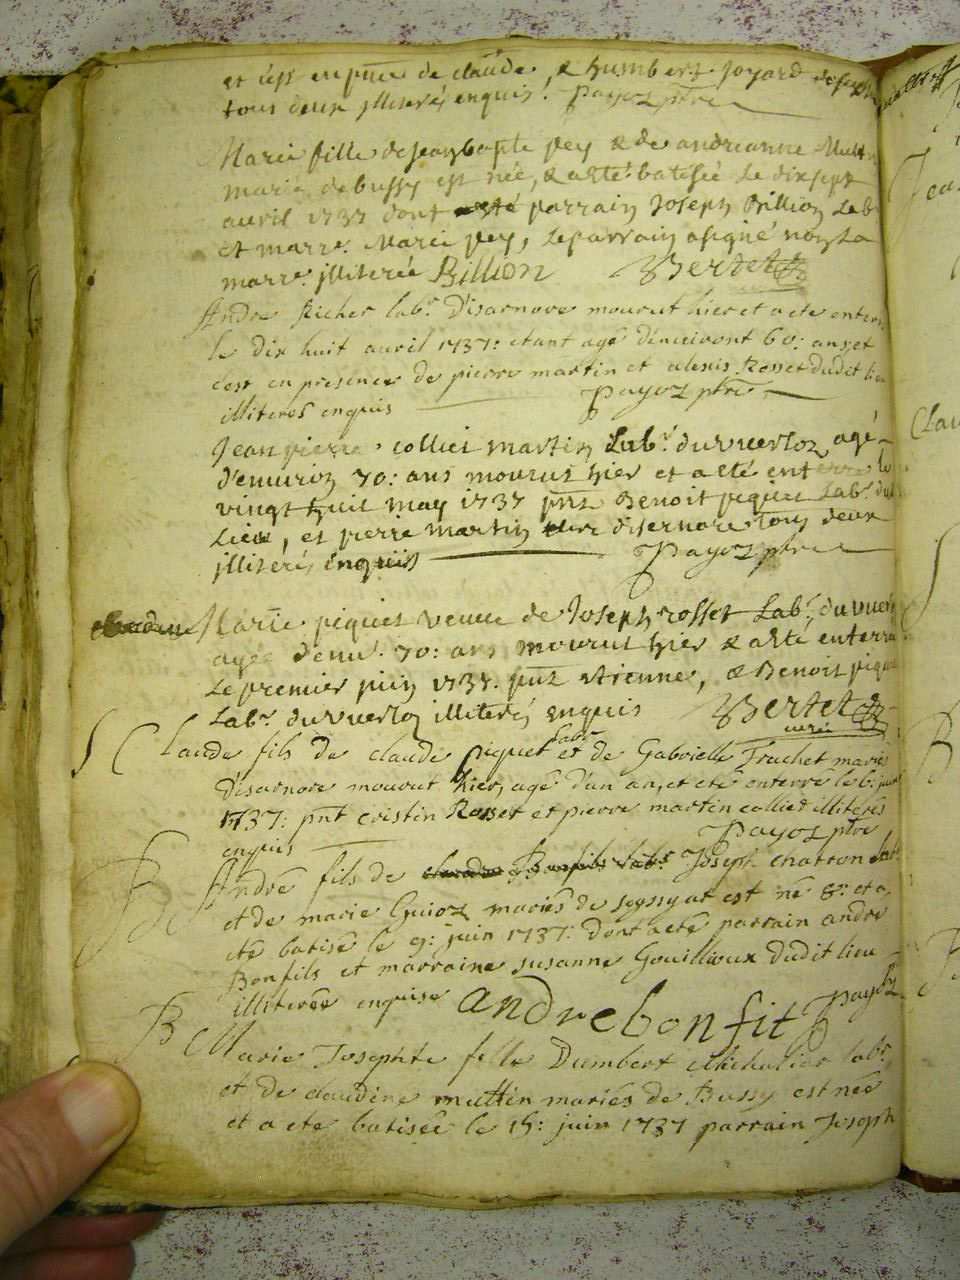 et c'est en pnce de claude, & humbert Joyard
tous deux illiterés enquis. Payoz ptre
Marie fille de Jean baptte pey & de andreanne
mariés de bussy est née, & a esté batisée le dix sept
avril 1737 dont parrain Joseph Billion Lab
et marre. Marie pey, le parrain a signé non la
marre. illiterée Billion Bertet
André Richer labr. D'isarnore mourut hier et a ete enterr
le dix huit avril 1737: etant agé d'enuiront 60: ans et
c'est en presence de pierre martin et alexis Rosset dudit lieu
illiteres enquis Payoz ptre
Jean pierre colliet martin Labr. du vuerloz agé
d'enuiron 70: ans mourut hier et a esté enterré le
vingt huit may 1737 pnt Benoit piquet Labr. du
Lieu, et pierre martin disernore tous deux
illiterés enquis Payoz ptre
Marie piquet veuue de Joseph rosset Labr. du vuer
agée d'enu. 70: ans mourut hier & a esté enterré
Le premier juin 1737. pnt Etienne, & Benoit piquet
Labr. du vuerloz illiterés enquis Bertet
curé
S Claude fils de claude piquet labr et de Gabrielle Truchet mariés
D'isarnore mourut hier, agé d'un an, et eté enterré le 6: juin
1737: pnt cristin Rosset et pierre martin colliet illiterés
enquis Payoz ptre
B André fils de Joseph charron lab
et de marie Guioz mariés de soyssy at est né 8: et a
eté batisé le 9: juin 1737: dont a eté parrain andré
Bonfils et marraine susanne Gouillioux dudit lieu
illiterée enquise andre bonfit payoz
B Marie Josephte fille D'umbert Michalier labr.
et de claudine muttin mariés de Bussy est née
et a ete batisée le 15: juin 1737 parrain Joseph